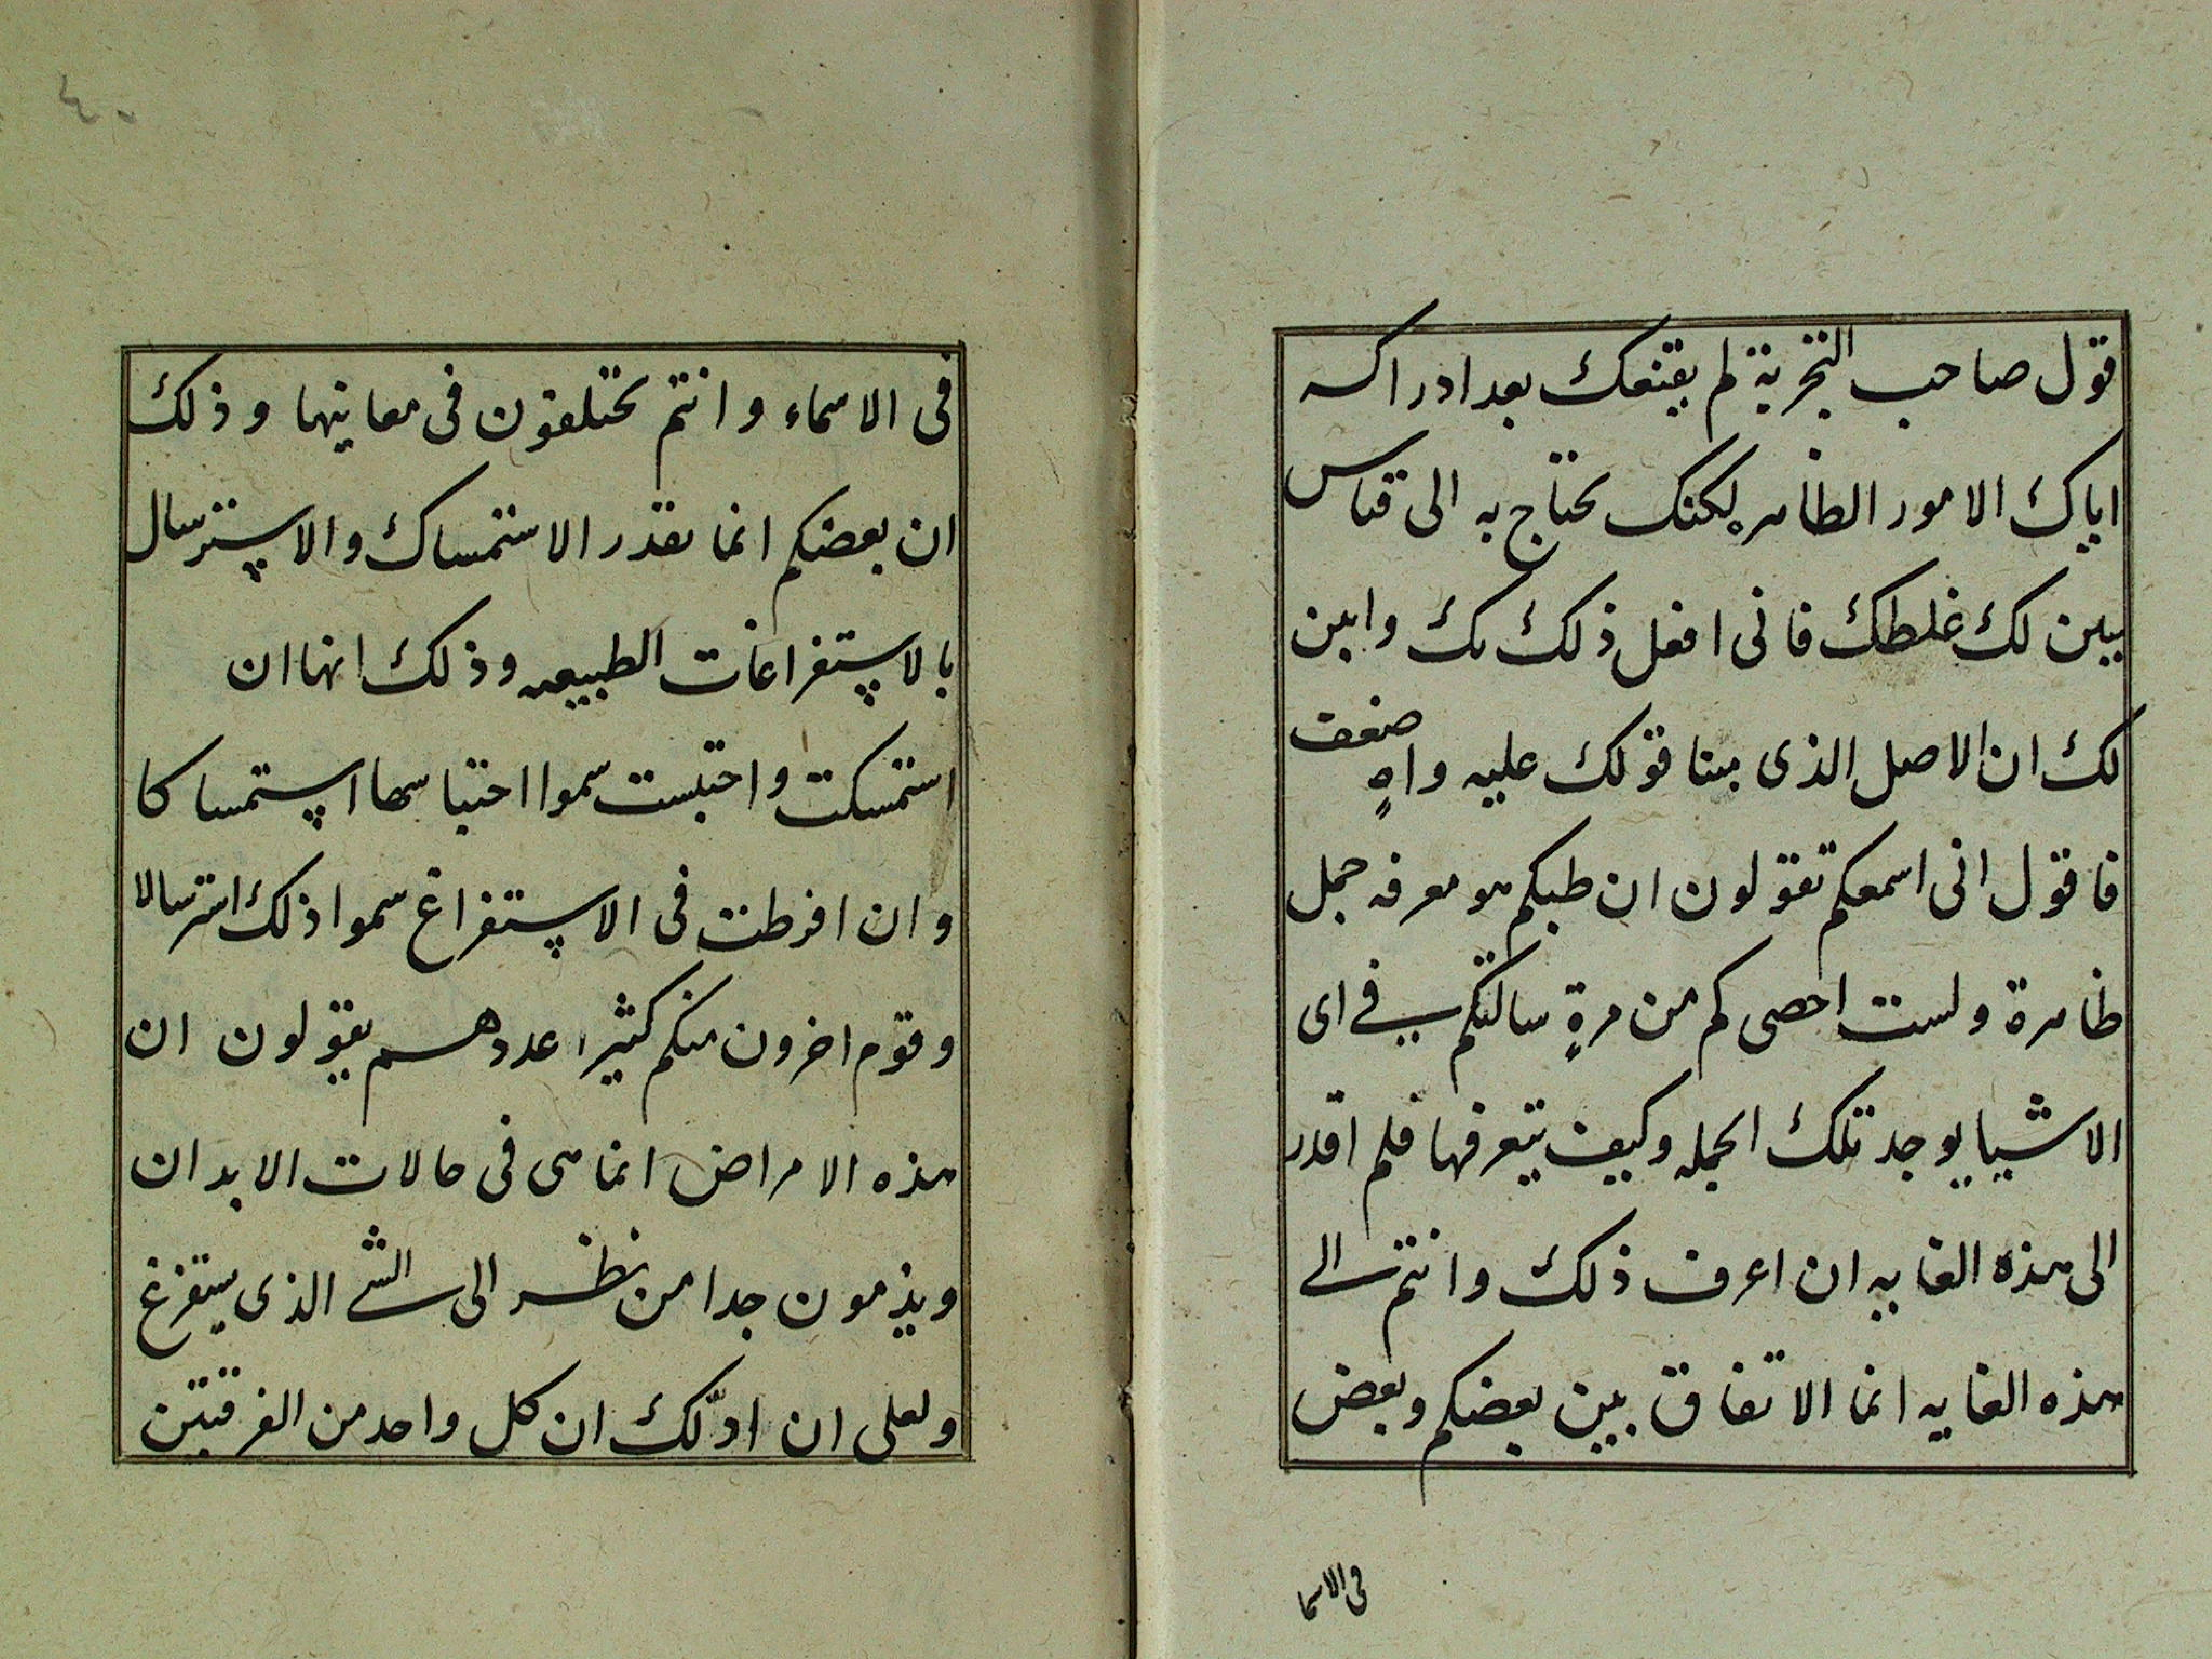 قول صاحب التجربة لم يقنعك بعد ادراكه
اياك الامور الظاهره لكنك تحتاج به الى قياس
يبين لك غلطك فانى افعل ذلك بك وابين
لك ان الاصل الذى بينا قولك عليه واهٍ ضعف
فاقول انى اسمعكم تقولون ان طبكم هو معرفه جمل
ظاهرة ولست احصى كم من مرةٍ سالتكم فى اى
الاشيا يوجد تلك الجمله وكيف يتعرفها فلم اقدر
الى هذه الغايه ان اعرف ذلك وانتم الى
هذه الغايه انما الاتفاق بين بعضكم وبعض
فى الاسما
٤٠
فى الاسماء وانتم تختلفون فى معانيها وذلك
ان بعضكم انما يقدر الاستمساك والاسترسال
بالاستفراغات الطبيعيه وذلك انها ان
استمسكت واحتبست سموا احتباسها استمساكا
وان افرطت فى الاستفراغ سموا ذلك استرسالا
وقوم اخرون منكم كثير عددهم يقولون ان
هذه الامراض انما هى فى حالات الابدان
ويذمون جدا من نظر الى الشى الذى يستفرغ
ولعلى ان ادلّك ان كل واحد من الفرقتين